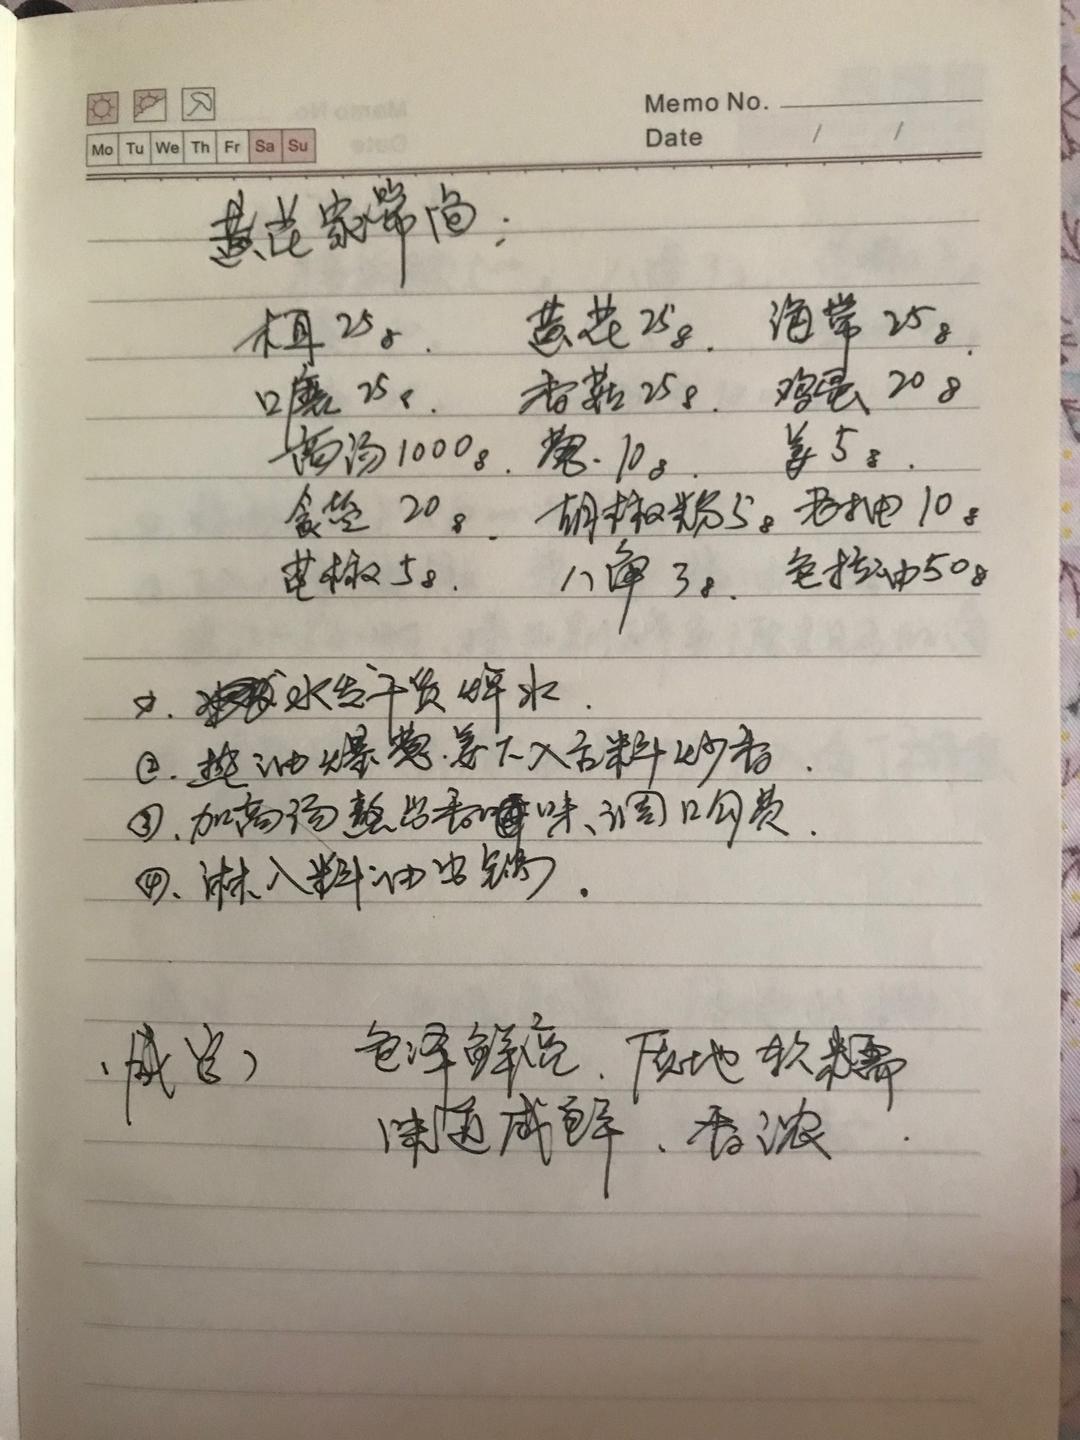 Memo No.
Mo Tu We Th Fr Sa Su
Date / /
黄花家常卤:
木耳25g. 黄花25g. 海带25g.
口蘑25g. 香菇25g. 鸡蛋20g
高汤1000g. 葱.10g. 姜5g.
食盐20g. 胡椒粉5g 老抽10g
花椒5g. 八角3g. 色拉油50g
①. 水发干货焯水.
②. 热油爆葱.姜下入主料炒香.
③. 加高汤熬出香味、调口勾芡.
④、淋入料油出锅.
色泽鲜亮、质地软糯
味道咸鲜、香浓.